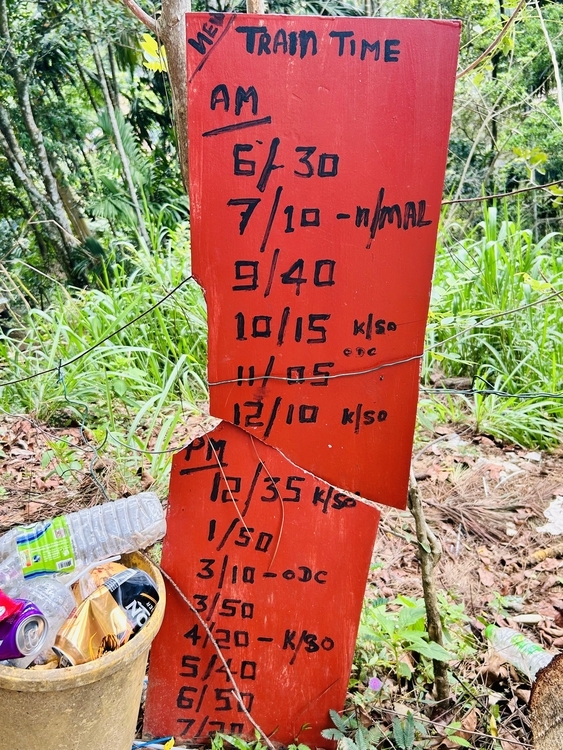 NEW TRAIN TIME
AM
6/30
7/10 - n/MAL
9/40
10/15 K/SO
ODC
11/05
12/10 K/SO
PM
12/35 K/SO
1/50
3/10 - ODC
3/50
4/20 - K/SO
5/40
6/50